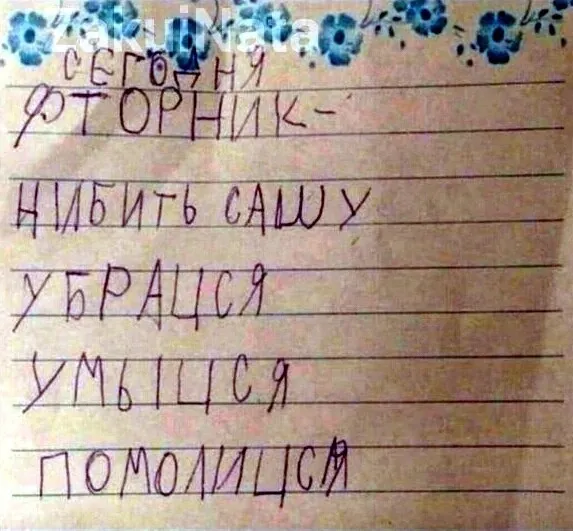 ZakuiNata
СЕГОДНЯ
ФТОРНИК-
НИБИТЬ САШУ
УБРАЦСЯ
УМЫЦСЯ
ПОМОЛИЦСЯ